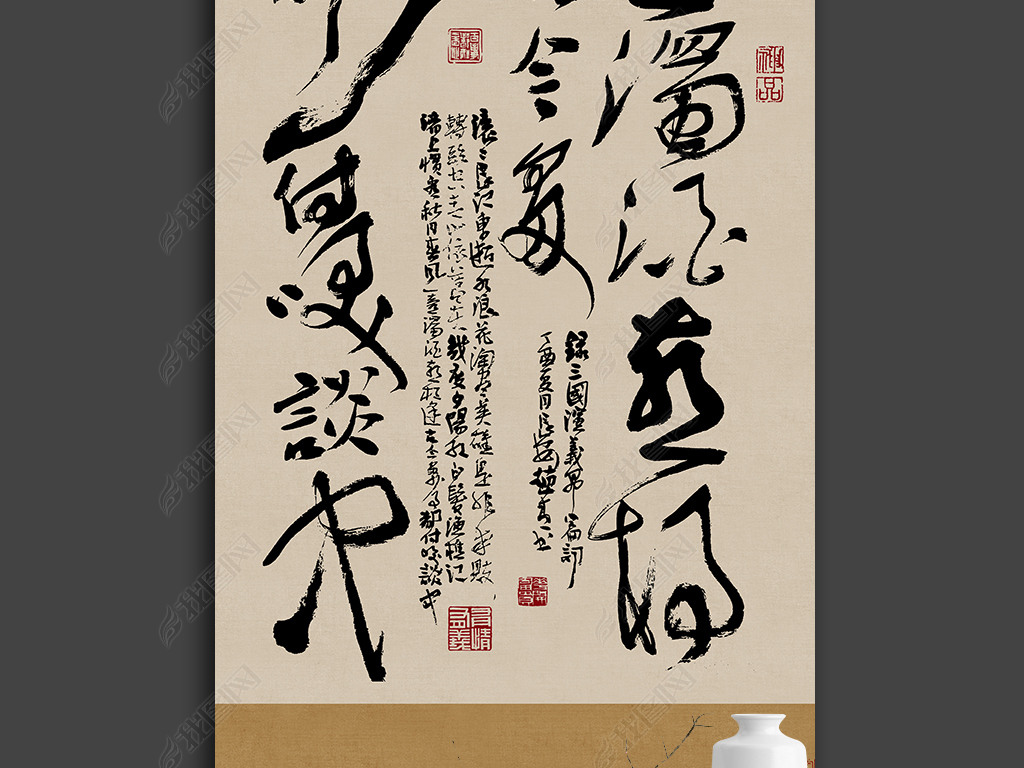 濁酒喜相
今多
付咲談中
滾滾長江東逝水浪花淘盡英雄是非成敗
轉頭空青山依舊在幾度夕陽紅白髮漁樵江
渚上慣看秋月春風一壺濁酒喜相逢古今多少事都付咲談中
錄三國演義第一篇詞
丁酉夏月長安
神品